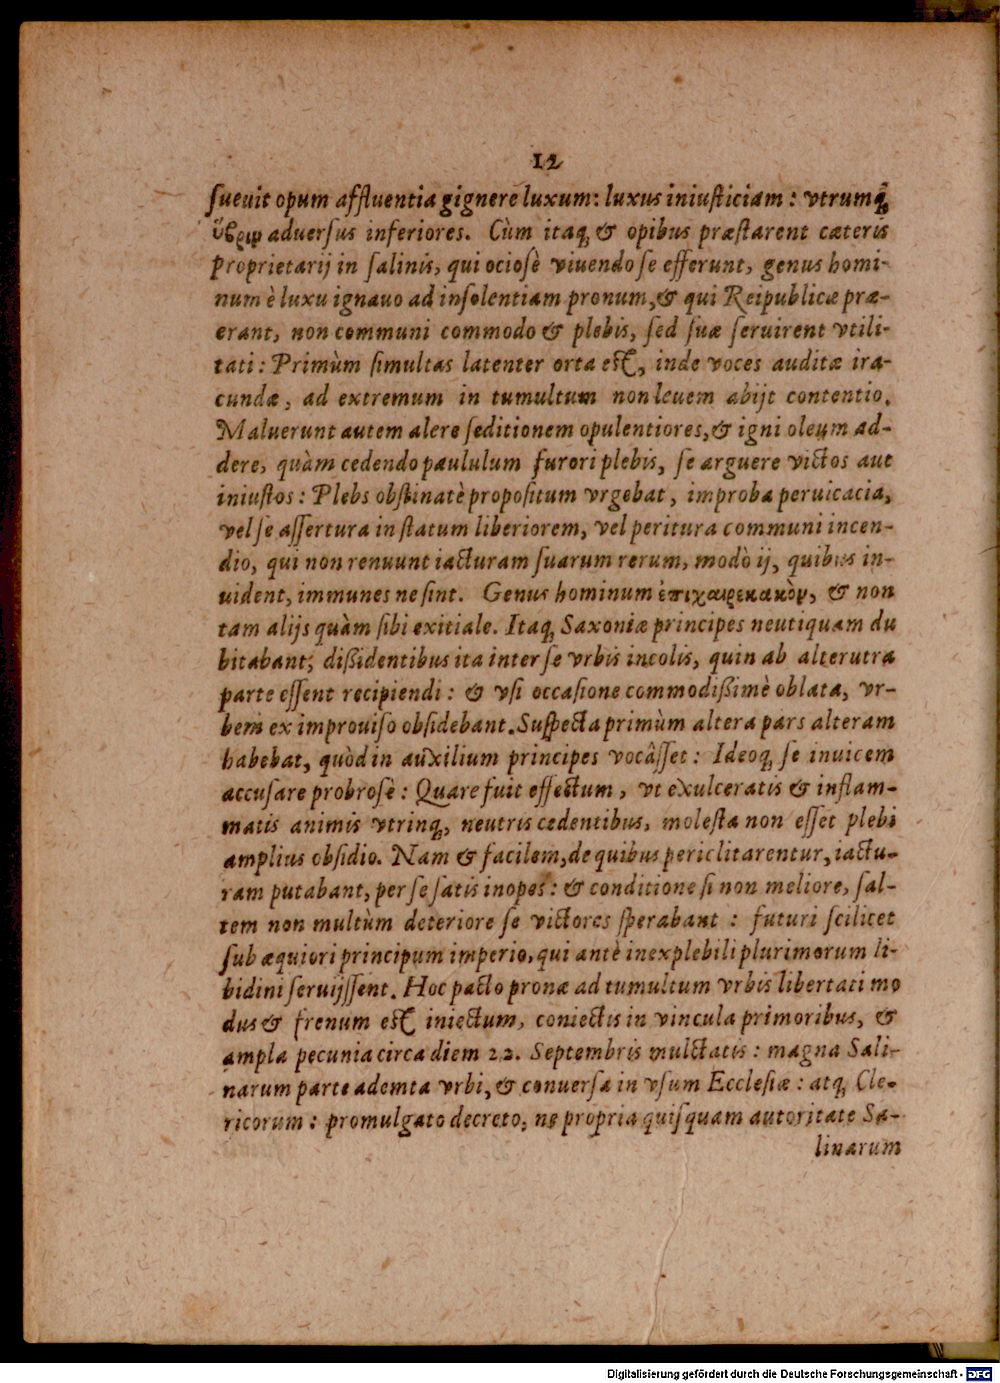 12
ſueuit opum affluentia gignere luxum: luxus iniuſticiam: vtrumq́;
ὕβριμ aduerſus inferiores. Cùm itaq; & opibus præſtarent cæteris
proprietarij in ſalinis, qui ocioſè viuendo ſe efferunt, genus homi-
num è luxu ignauo ad inſolentiam pronum, & qui Reipublicæ præ-
erant, non communi commodo & plebis, ſed ſuæ ſeruirent vtili-
tati: Primùm ſimultas latenter orta eſt, inde voces auditæ ira-
cundæ, ad extremum in tumultum non leuem abijt contentio.
Maluerunt autem alere ſeditionem opulentiores, & igni oleum ad-
dere, quàm cedendo paululum furori plebis, ſe arguere victos aut
iniuſtos: Plebs obſtinatè propoſitum vrgebat, improba peruicacia,
vel ſe aſſertura in ſtatum liberiorem, vel peritura communi incen-
dio, qui non renuunt iacturam ſuarum rerum, modò ij, quibus in-
uident, immunes ne ſint. Genus hominum ἐπιχαιρεκακὸν, & non
tam alijs quàm ſibi exitiale. Itaq; Saxoniæ principes neutiquam du
bitabant, diſſidentibus ita inter ſe vrbis incolis, quin ab alterutra
parte eſſent recipiendi: & vſi occaſione commodiſſimè oblata, vr-
bem ex improuiſo obſidebant. Suſpecta primùm altera pars alteram
habebat, quòd in auxilium principes vocâſſet: Ideoq; ſe inuicem
accuſare probrosè: Quare fuit effectum, vt exulceratis & inflam-
matis animis vtrinq;, neutris cedentibus, moleſta non eſſet plebi
amplius obſidio. Nam & facilem, de quibus periclitarentur, iactu-
ram putabant, per ſe ſatis inopes: & conditione ſi non meliore, ſal-
tem non multùm deteriore ſe victores ſperabant: futuri ſcilicet
ſub æquiori principum imperio, qui antè inexplebili plurimorum li-
bidini ſeruijſſent. Hoc pacto pronæ ad tumultum vrbis libertati mo
dus & frenum eſt iniectum, coniectis in vincula primoribus, &
ampla pecunia circa diem 22. Septembris mulctatis: magna Sali-
narum parte ademta vrbi, & conuerſa in vſum Eccleſiæ: atq; Cle-
ricorum: promulgato decreto, ne propria quiſquam autoritate Sa-
linarum
Digitalisierung gefördert durch die Deutsche Forschungsgemeinschaft - DFG